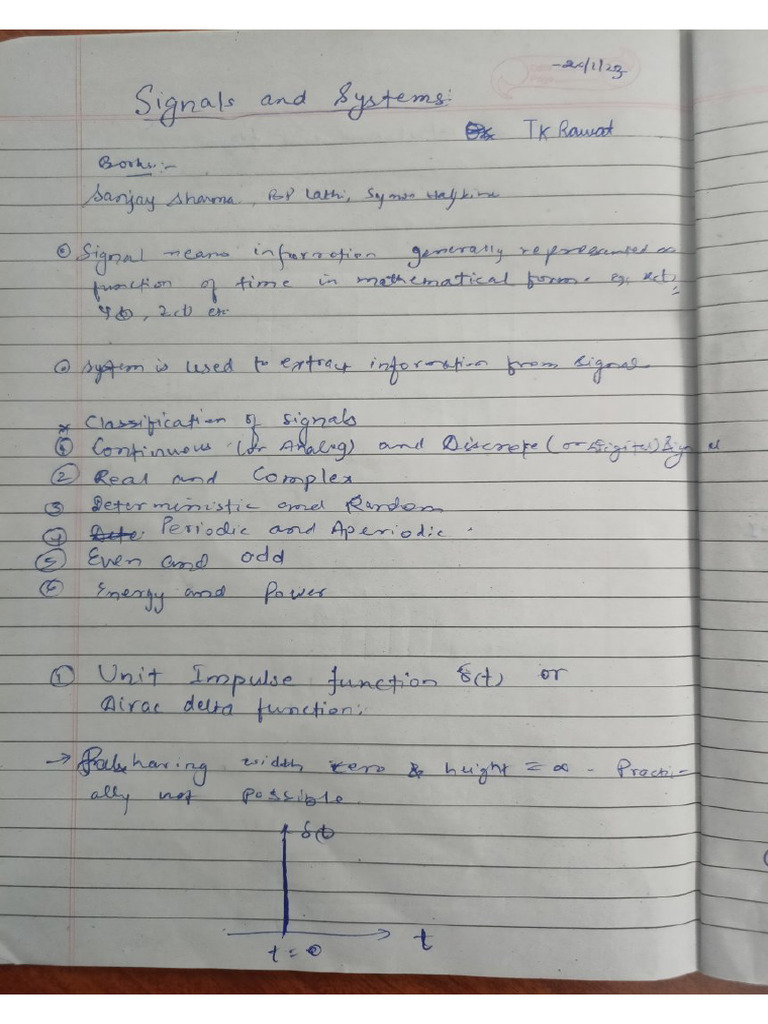 Signals and Systems:
TK Rawat
Books:-
Sanjay Sharma, BP Lathi,
Signal means information generally represented as
function of time in mathematical form. eg. x(t),
y(t), z(t) etc
System is used to extract information from signal
* Classification of signals
① Continuous (or Analog) and Discrete (or Digital) Signal
② Real and Complex
③ Deterministic and Random
④ Periodic and Aperiodic.
⑤ Even and odd
⑥ Energy and Power
① Unit Impulse function δ(t) or
Dirac delta function:
→ having width zero & height = ∞ - Practi-
ally not possible.
δ(t)
t
t = 0